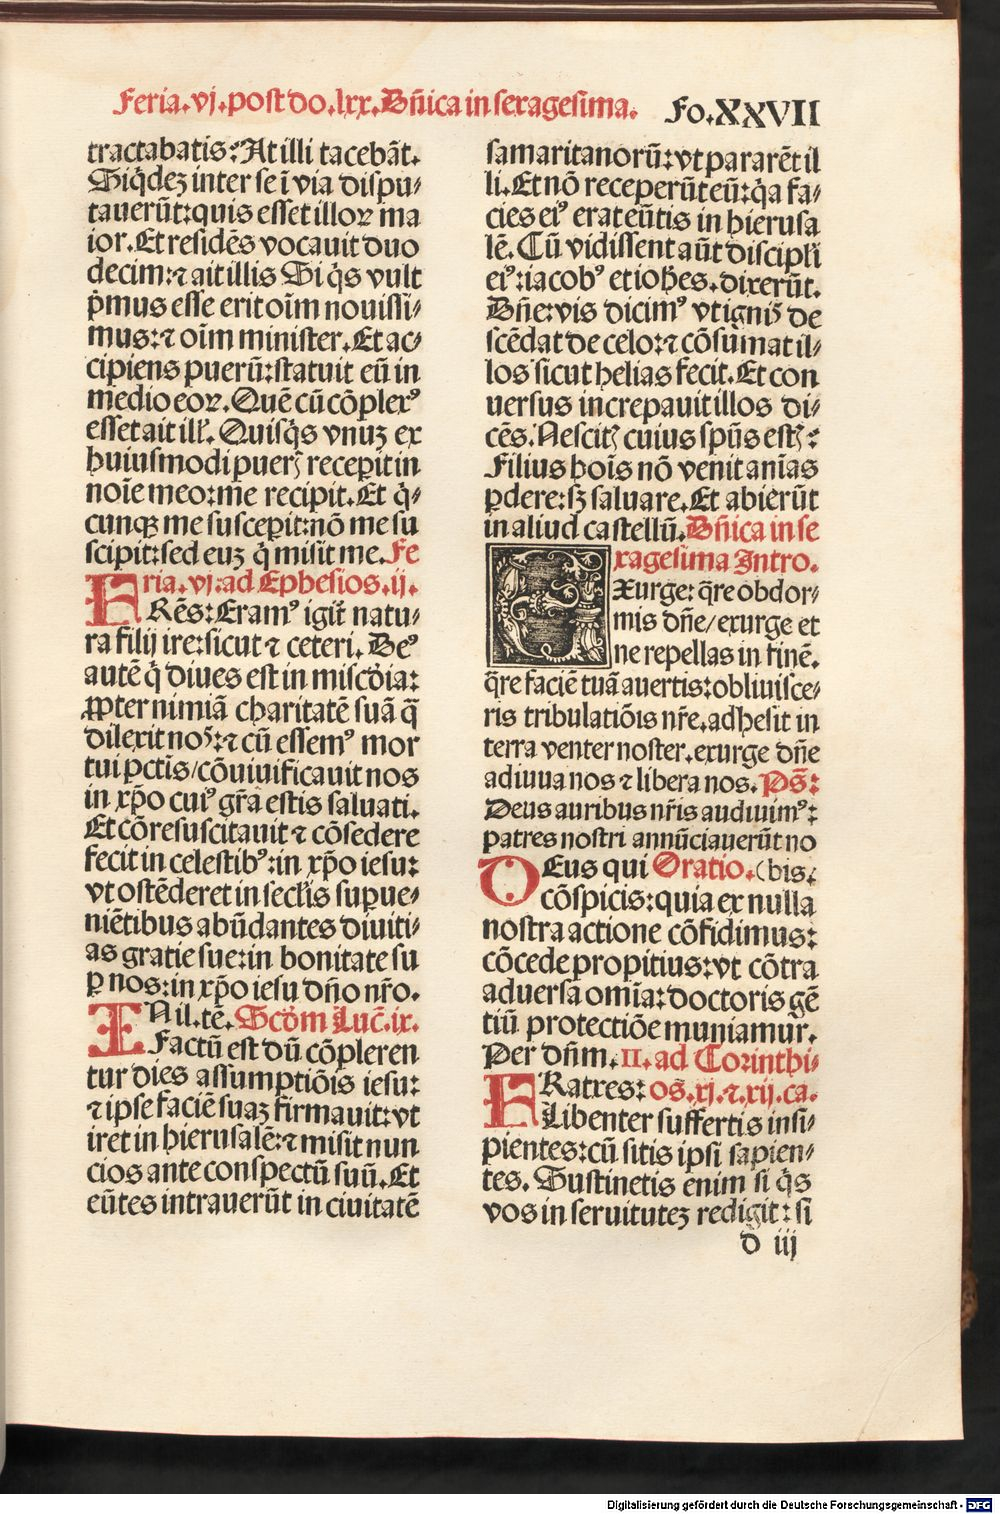 Feria.vj.post do.lxx.Dñica in sexagesima. Fo.XXVII
tractabatis: At illi tacebãt.
Siq̇dez inter se ĩ via dispu⸗
tauerũt:quis esset illoꝝ ma
ior. Et residẽs vocauit duo
decim:⁊ ait illis Si q̇s vult
p̃mus esse erit oĩm nouissi⸗
mus:⁊ oĩm minister. Et ac⸗
cipiens puerũ:statuit eũ in
medio eoꝝ. Quẽ cũ cõplexꝰ
esset ait ill̃. Quisq̇s vnuz ex
huiusmodi pueris receꝑit in
noĩe meo:me recipit. Et q̇⸗
cunqꝫ me susceꝑit:nõ me su
scipit:sed euz q̇ misit me. Fe
ria.vj.ad Ephesios.ij.
FRẽs: Eramꝰ igit̃ natu⸗
ra filij ire:sicut ⁊ ceteri. Deꝰ
autẽ q̇ diues est in miscðia:
ꝓpter nimiã charitatẽ suã q̃
dilexit nos:⁊ cũ essemꝰ mor
tui pctĩs/cõuiuificauit nos
in xp̃o cuiꝰ gr̃a estis saluati.
Et cõresuscitauit ⁊ cõsedere
fecit in celestibꝰ:in xp̃o iesu:
vt ostẽderet in seclis suꝑue⸗
niẽtibus abũdantes diuiti⸗
as gratie sue:in bonitate su
ꝑ nos:in xp̃o iesu dño nr̃o.
INil.tẽ. Scðm Luc̃.ix.
Factũ est dũ cõpleren
tur dies assumptiõis iesu:
⁊ ipse faciẽ suaz firmauit:vt
iret in hierusalẽ:⁊ misit nun
cios ante conspectũ suũ. Et
eũtes intrauerũt in ciuitatẽ
samaritanorũ:vt pararẽt il
li. Et nõ receperũt eũ:q̇a fa⸗
cies eiꝰ erat eũtis in hierusa
lẽ. Cũ vidissent aũt discipl̃i
eiꝰ:iacobꝰ et ioh̃es. dixerũt.
Dñe:vis dicimꝰ vt ignis de
scẽdat de celo:⁊ cõsumat il⸗
los sicut helias fecit. Et con
uersus increpauit illos di⸗
cẽs. Nescitis cuius sp̃us estis:
Filius hoĩs nõ venit anĩas
ꝑdere:sꝫ saluare. Et abierũt
in aliud castellũ. Dñica in se
xagesima Intro.
EXurge: q̃re obdor⸗
mis dñe/exurge et
ne repellas in finẽ.
q̃re faciẽ tuã auertis:obliuisce⸗
ris tribulatiõis nr̃e.adhesit in
terra venter noster.exurge dñe
adiuua nos ⁊ libera nos. Ps̃:
Deus auribus nr̃is audiuimꝰ:
patres nostri annũciauerũt no
DEus qui Oratio. (bis.
cõspicis:quia ex nulla
nostra actione cõfidimus:
cõcede propitius:vt cõtra
aduersa omĩa:doctoris gẽ
tiũ protectiõe muniamur.
Per dñm. II. ad Corinthi⸗
FRatres: os̃.xj.⁊.xij.ca.
Libenter suffertis insi⸗
pientes:cũ sitis ipsi sapien⸗
tes. Sustinetis enim si q̇s
vos in seruitutez redigit: si
d iij
Digitalisierung gefördert durch die Deutsche Forschungsgemeinschaft - DFG